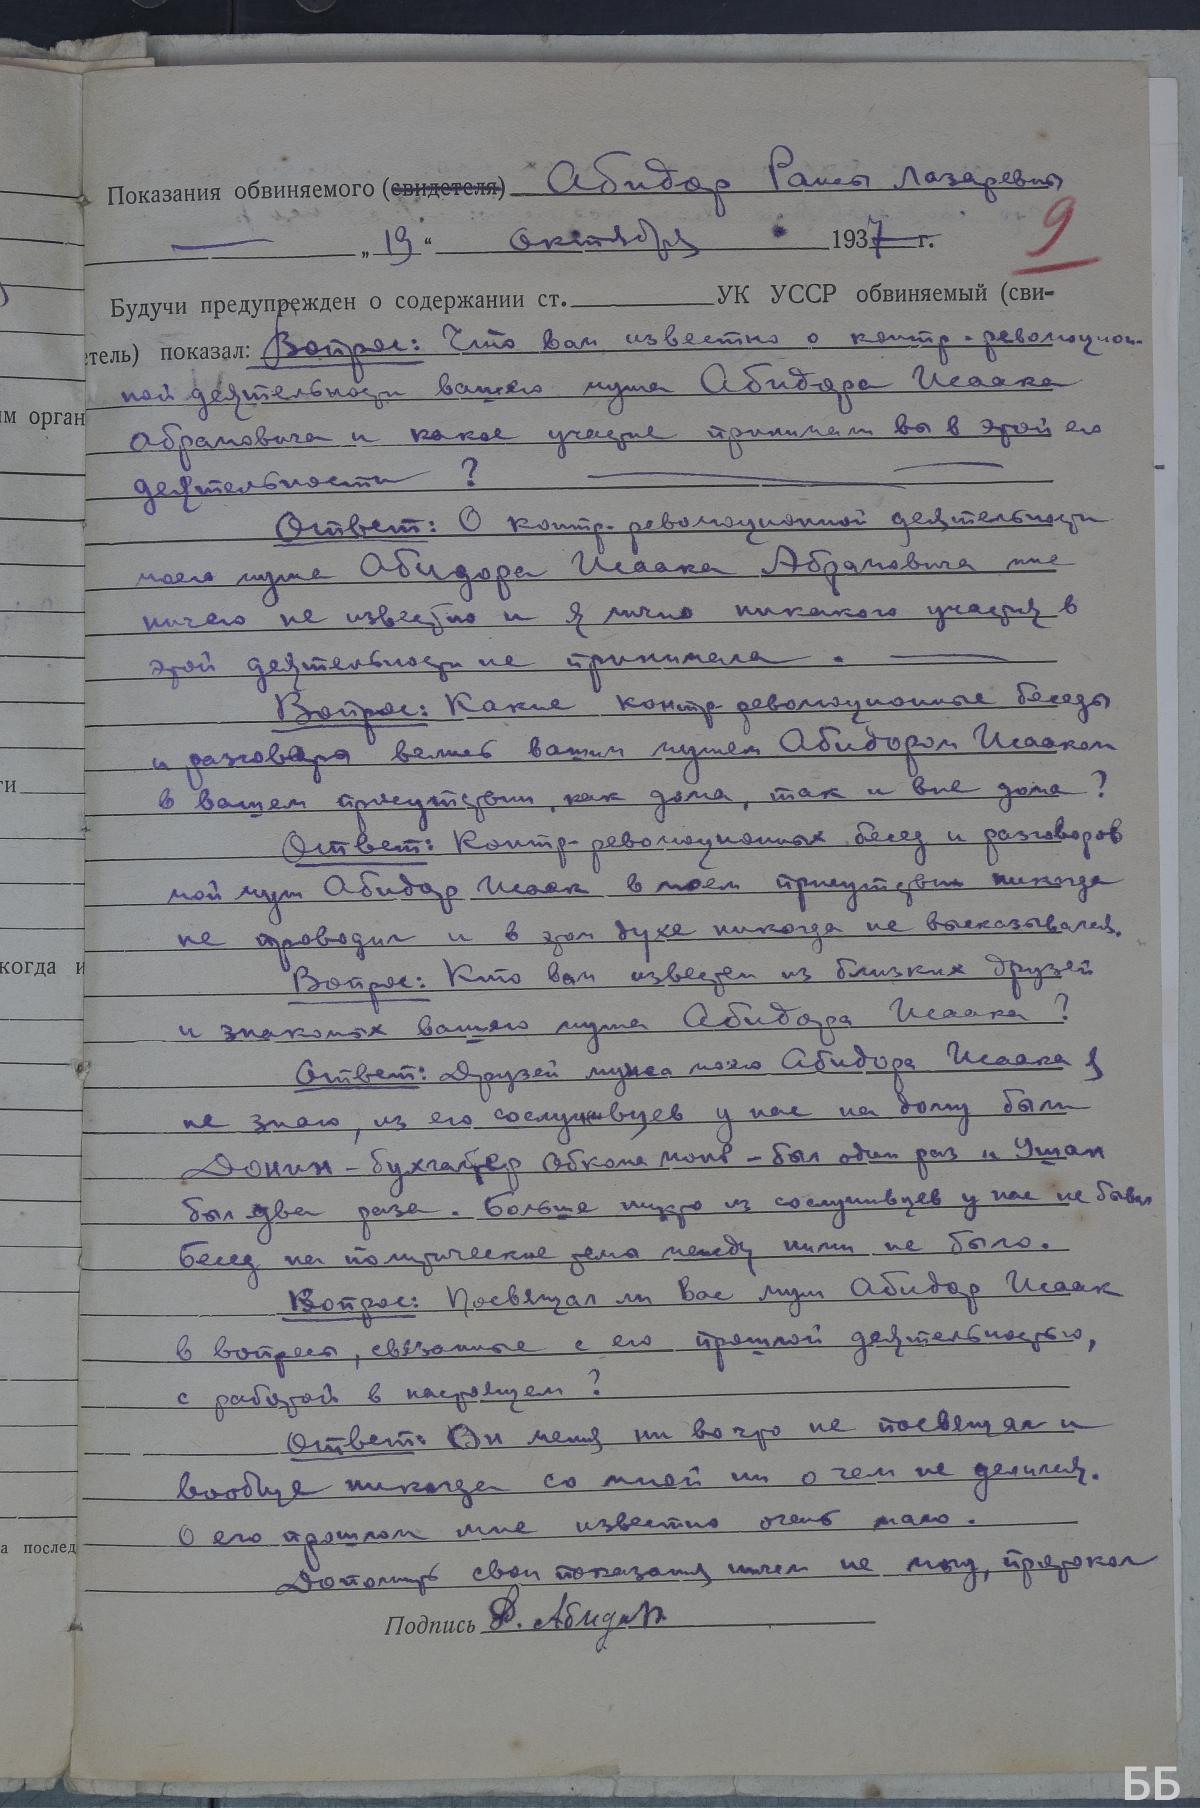 Показания обвиняемого (свидетеля) Абидор Раисы Лазаревны
„19“ октября 1937 г.
9
Будучи предупрежден о содержании ст. УК УССР обвиняемый (сви-
етель) показал: Вопрос: Что вам известно о контр-революцион-
ной деятельности вашего мужа Абидора Исаака
Абрамовича и какое участие принимали вы в этой его
деятельности?
Ответ: О контр-революционной деятельности
моего мужа Абидора Исаака Абрамовича мне
ничего не известно и я лично никакого участия в
этой деятельности не принимала.
Вопрос: Какие контр-революционные беседы
и разговоры велись вашим мужем Абидором Исааком
в вашем присутствии, как дома, так и вне дома?
Ответ: Контр-революционных бесед и разговоров
мой муж Абидор Исаак в моем присутствии никогда
не проводил и в этом духе никогда не высказывался.
Вопрос: Кто вам известен из близких друзей
и знакомых вашего мужа Абидора Исаака?
Ответ: Друзей мужа моего Абидора Исаака я
не знаю, из его сослуживцев у нас на дому были
Донин - бухгалтер Обкома - был один раз и Уман
был два раза. Больше никто из сослуживцев у нас не бывал
бесед на политические темы между ними не было.
Вопрос: Посвящал ли Вас муж Абидор Исаак
в вопросы, связанные с его прошлой деятельностью,
с работой в настоящем?
Ответ: Он меня ни во что не посвящал и
вообще никогда со мной ни о чем не делился.
О его прошлом мне известно очень мало.
Дополнить свои показания ничем не могу, протокол
Подпись Р. Абидор
м орган
ти
когда и
а послед
ББ